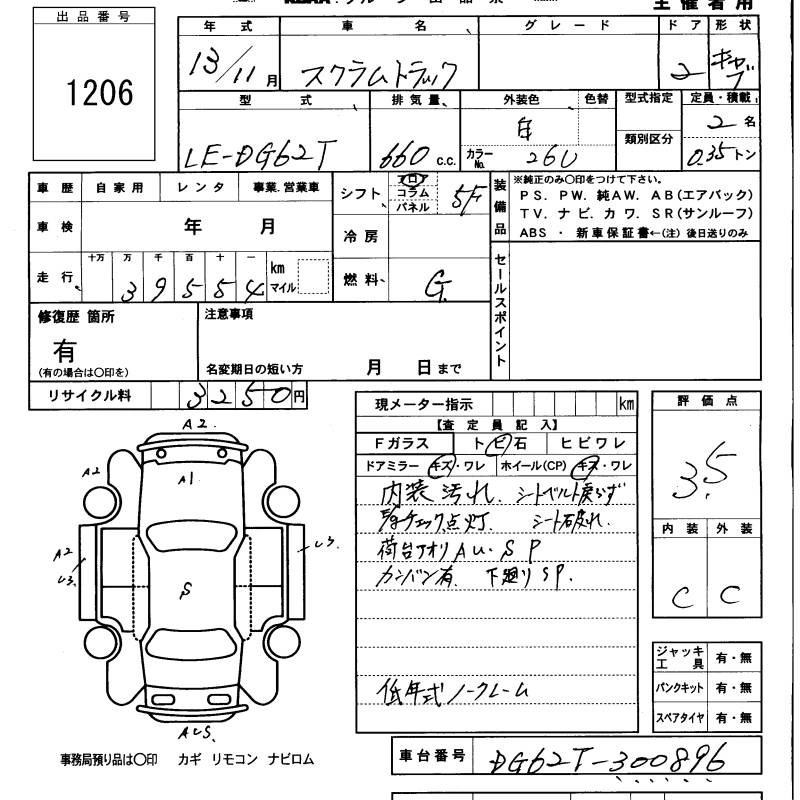 主催者用
出品番号
1206
年式 車名 グレード ドア 形状
13/11月 スクラムトラック 2 キャブ
型式 排気量 外装色 色替 型式指定 定員・積載
LE-DG62T 660 c.c. 白 カラーNo. 26U 類別区分 2名 0.35トン
車歴 自家用 レンタ 事業.営業車
シフト フロア コラム パネル 5F
装備品
※純正のみ〇印をつけて下さい。
PS. PW. 純AW. AB(エアバック)
TV. ナビ. カワ. SR(サンルーフ)
ABS ・ 新車保証書←(注) 後日送りのみ
車検 年 月
冷房
走行 十万 万 千 百 十 一
39554 km マイル
燃料 G
セールスポイント
修復歴 箇所
有
(有の場合は〇印を)
注意事項
名変期日の短い方 月 日まで
リサイクル料 3250円
現メーター指示 km
【査定員記入】
Fガラス トビ石 ヒビワレ
ドアミラー キズ・ワレ ホイール(CP) キズ・ワレ
内装汚れ. シートベルト戻らず
チェック点灯. シート破れ.
荷台アオリ AU・S P
カンバン有. 下廻り SP.
低年式ノークレーム
評価点
3.5
内装 外装
C C
ジャッキ工具 有・無
パンクキット 有・無
スペアタイヤ 有・無
A2.
A2 A1
A2
U3. U3.
S
AUS.
事務局預り品は〇印 カギ リモコン ナビロム
車台番号 DG62T-300896